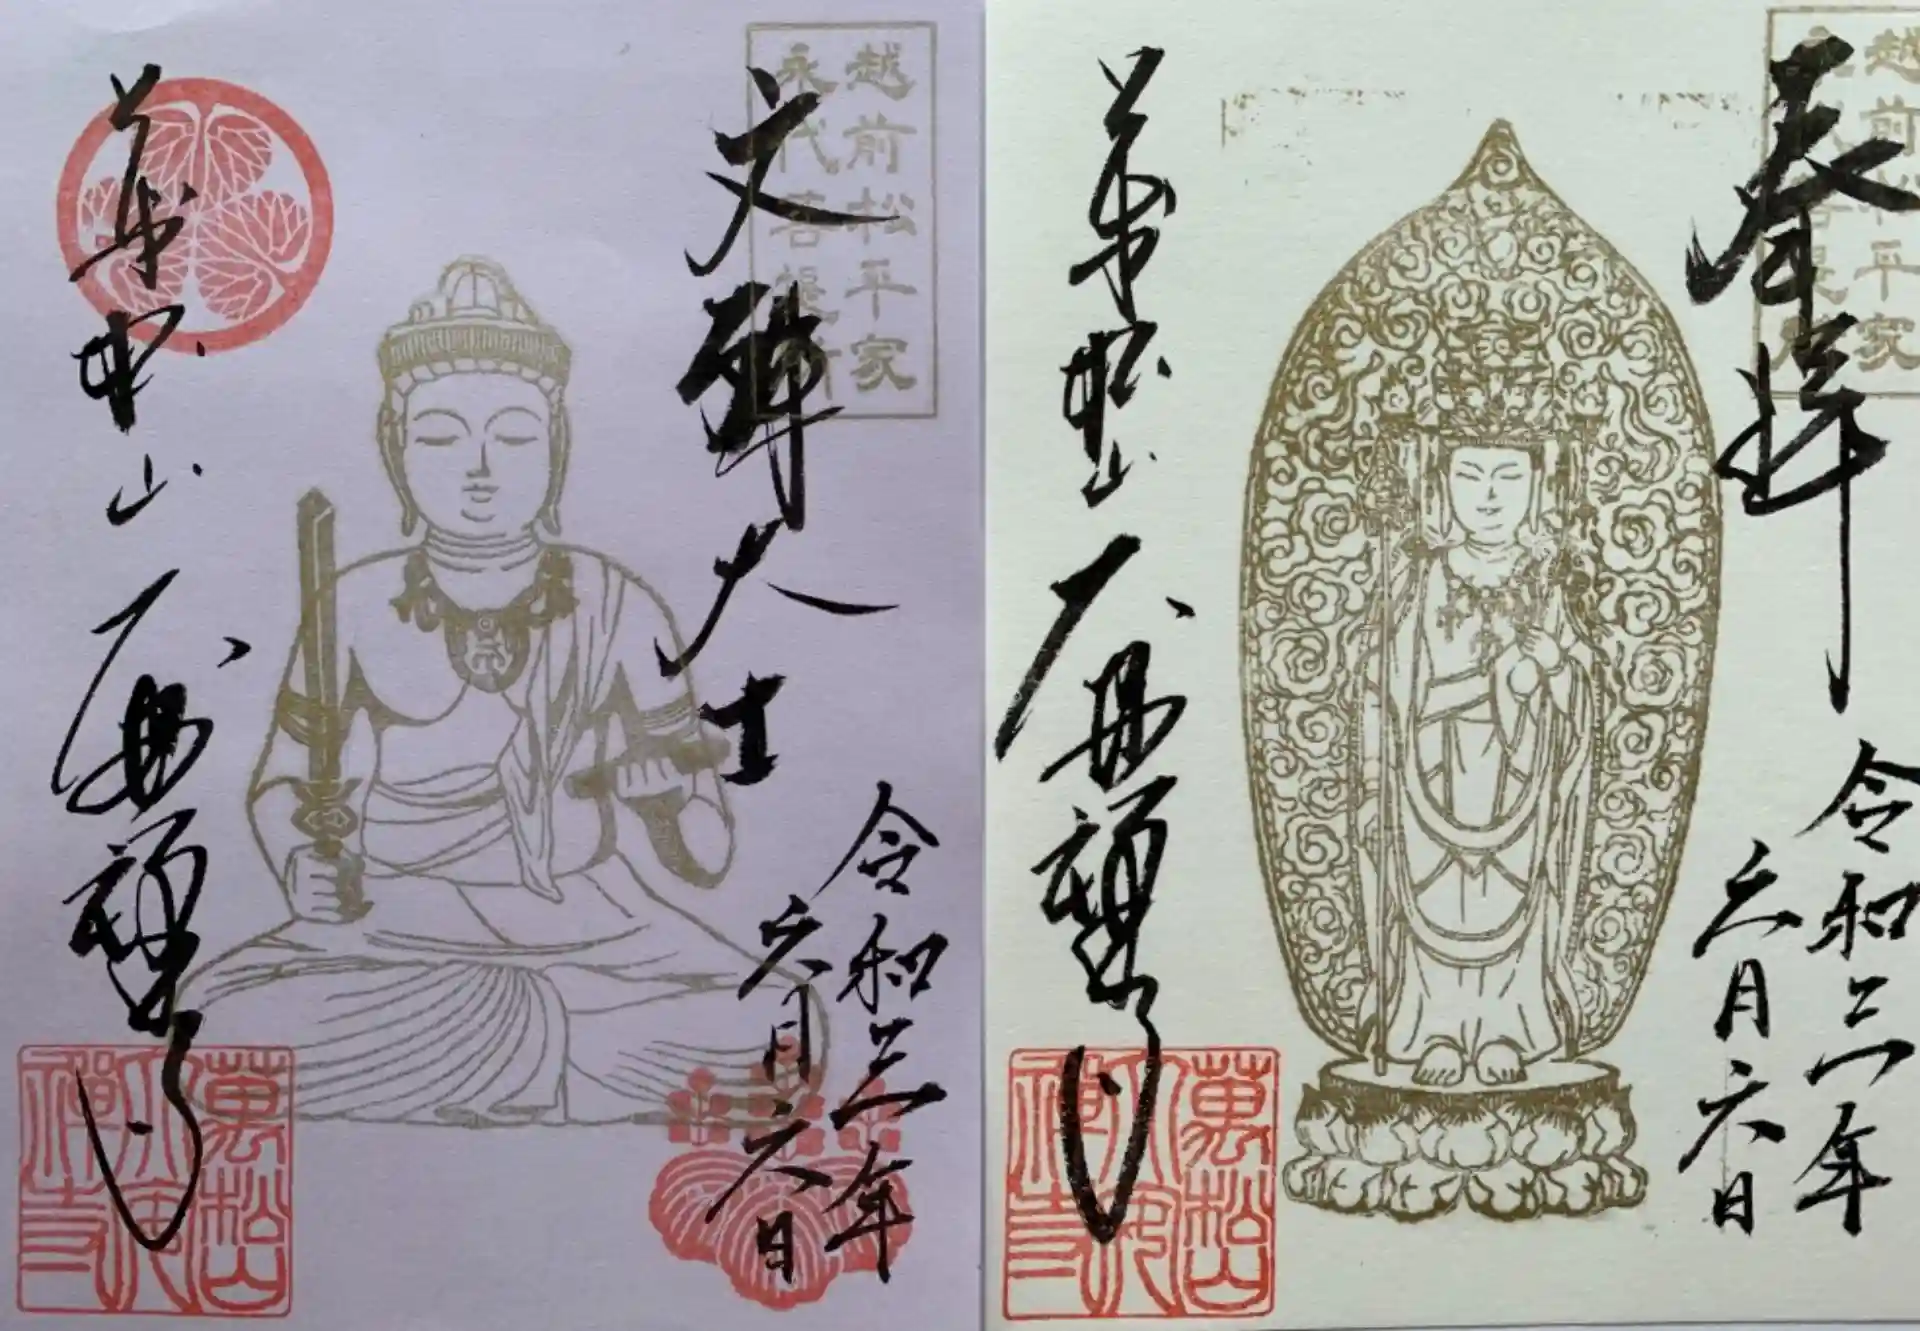 越前松平家
永代菩提所
文殊大士
令和三年
六月六日
萬松山
萬松山
大安
禪寺
越前松平家
永代菩提所
奉拝
令和三年
六月六日
萬松山
萬松山
大安
禪寺